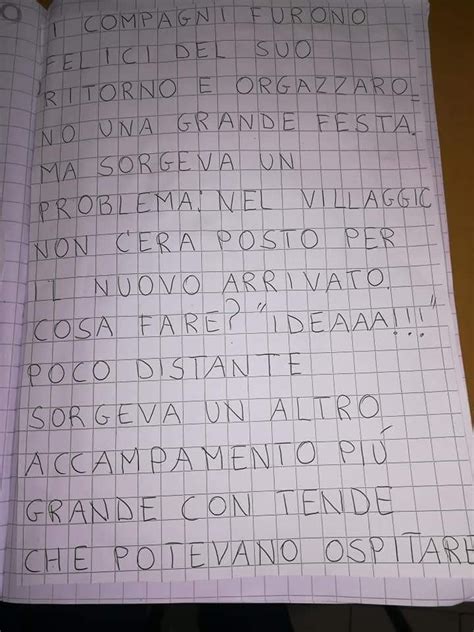 I COMPAGNI FURONO
FELICI DEL SUO
RITORNO E ORGAZZARO_
NO UNA GRANDE FESTA.
MA SORGEVA UN
PROBLEMA: NEL VILLAGGIO
NON C'ERA POSTO PER
IL NUOVO ARRIVATO.
COSA FARE? "IDEAAA!!!"
POCO DISTANTE
SORGEVA UN ALTRO
ACCAMPAMENTO PIÚ
GRANDE CON TENDE
CHE POTEVANO OSPITARE